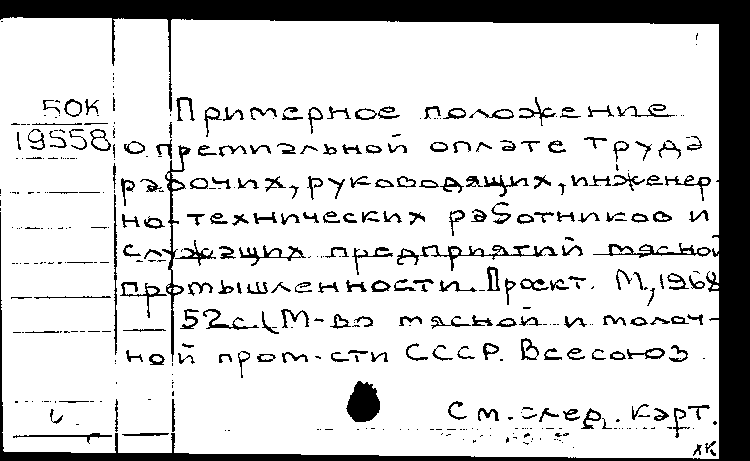 50К
19558
Примерное положение
о премиальной оплате труда
рабочих, руководящих, инженер-
но-технических работников и
служащих предприятий мясной
промышленности. Проект. М., 1968
52с. (М-во мясной и молоч-
ной пром-сти СССР. Всесоюз
См. след. карт.
ХК